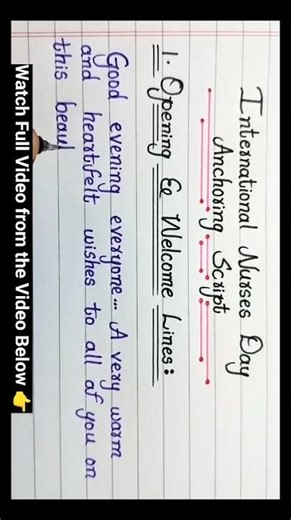 International Nurses Day
Anchoring Script
1. Opening & Welcome Lines:
Good evening everyone... A very warm
and heartfelt wishes to all of you on
this beau
Watch Full Video from the Video Below 👉